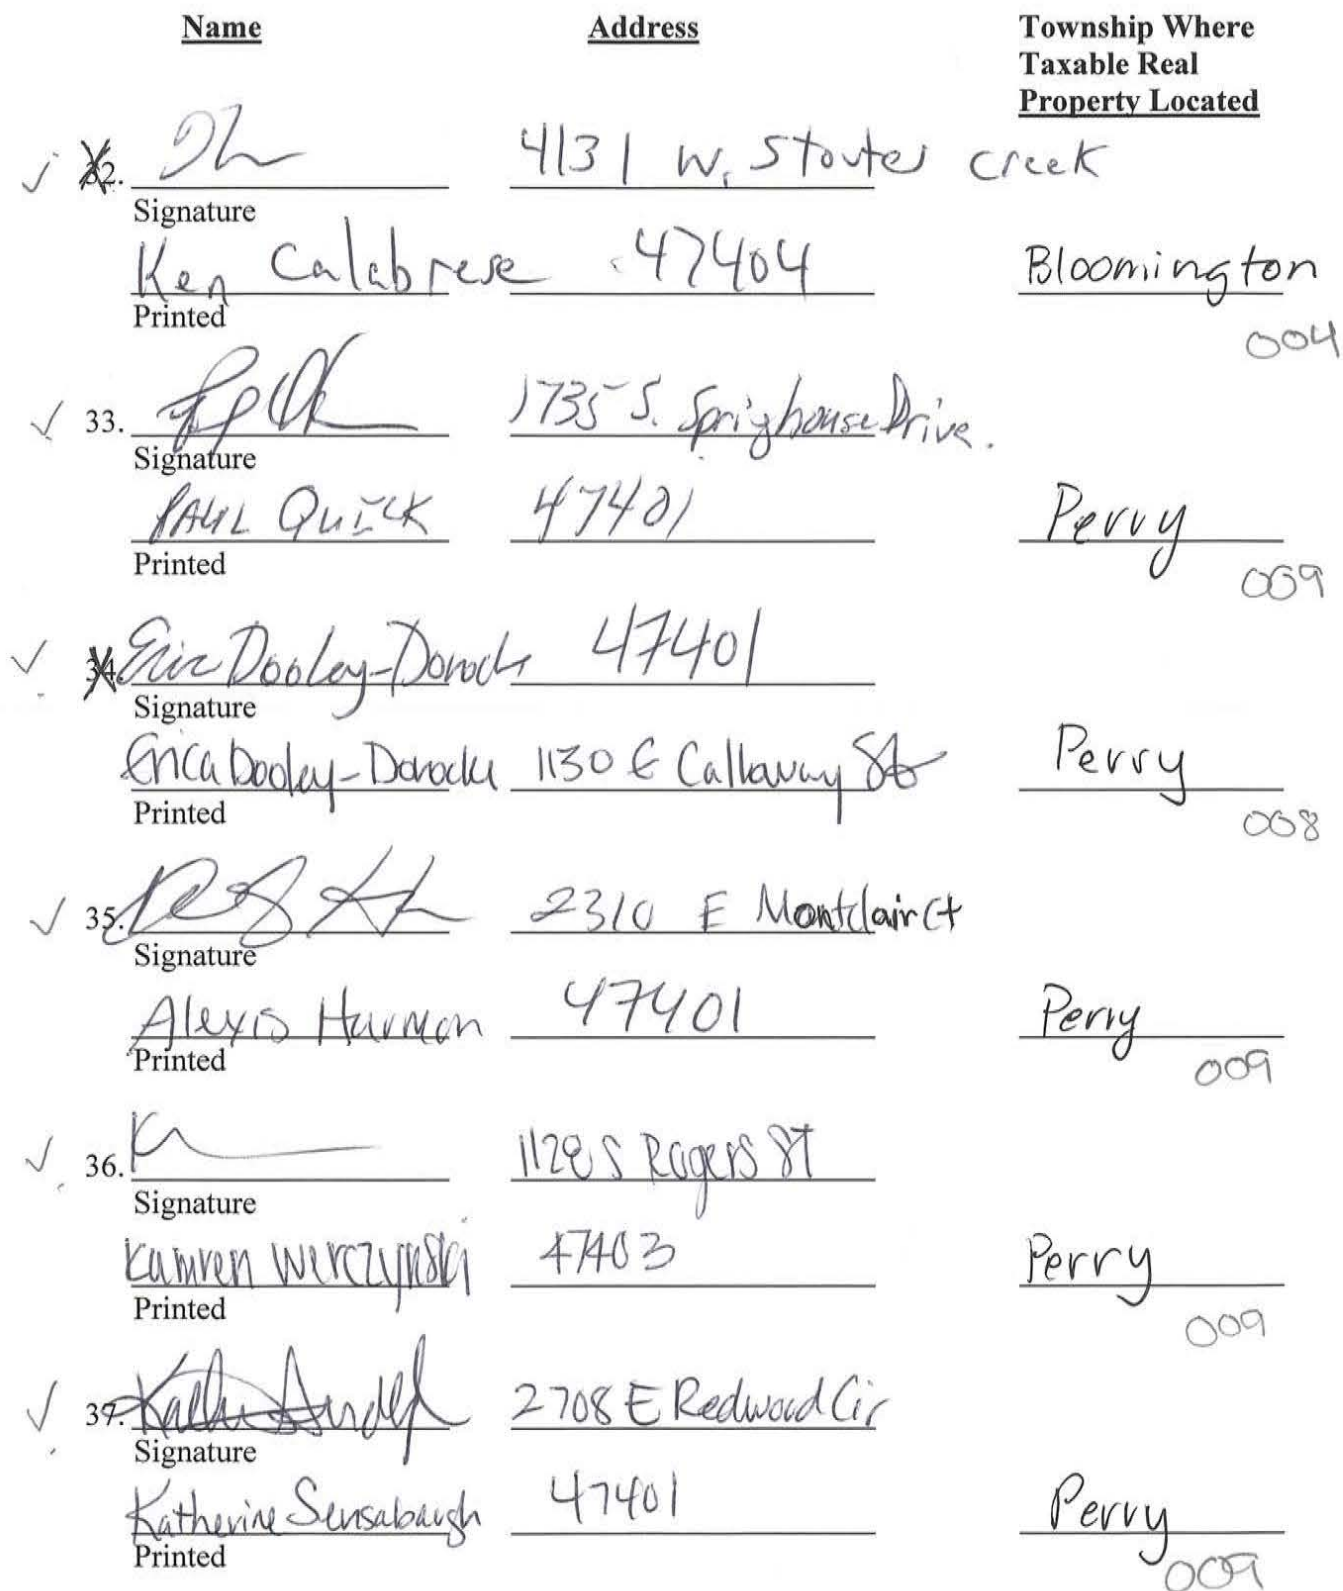 Name Address Township Where
Taxable Real
Property Located
32. 4131 W. Stoutes Creek
Signature
Ken Calabrese 47404 Bloomington
Printed
004
33. 1735 S. Sprighouse Drive.
Signature
PAUL QUICK 47401 Perry
Printed
009
34. Eric Dooley-Dorocke 47401
Signature
Erica Dooley-Dorocke 1130 E Callaway St Perry
Printed
008
35. 2310 E Montclair Ct
Signature
Alexis Harmon 47401 Perry
Printed
009
36. 1128 S Rogers ST
Signature
Kamren Werczynski 47403 Perry
Printed
009
37. 2708 E Redwood Cir
Signature
Katherine Sensabaugh 47401 Perry
Printed
009